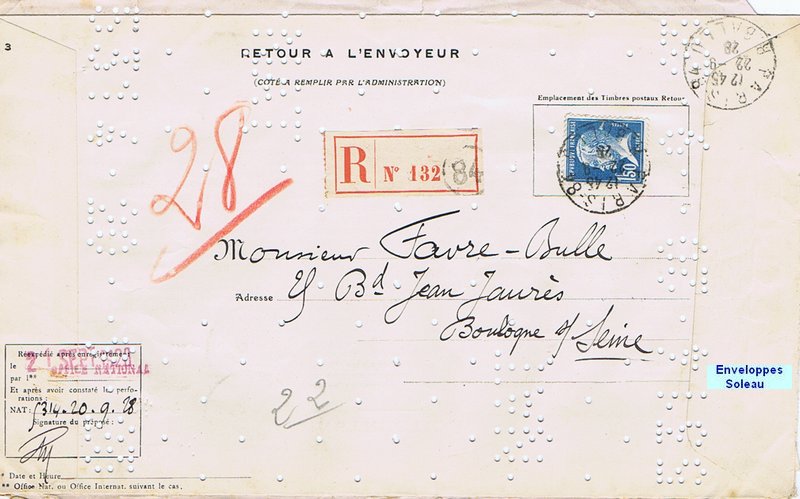 3
RETOUR A L'ENVOYEUR
(COTÉ A REMPLIR PAR L'ADMINISTRATION)
Emplacement des Timbres postaux Retour
PARIS-84
12 45
22-9
28
R
N° 132
84
1F50
28
Monsieur Favre-Bulle
Adresse 25 Bd Jean Jaurès
Boulogne s/ Seine
Enveloppes
Soleau
Réexpédié après enregistrement
le 21 SEPT
par l'** OFFICE NATIONAL
Et après avoir constaté le perfo-
rations :
NAT: 5314.20.9.28
Signature du préposé :
22
* Date et Heure
** Office Nat. ou Office Internat. suivant le cas.